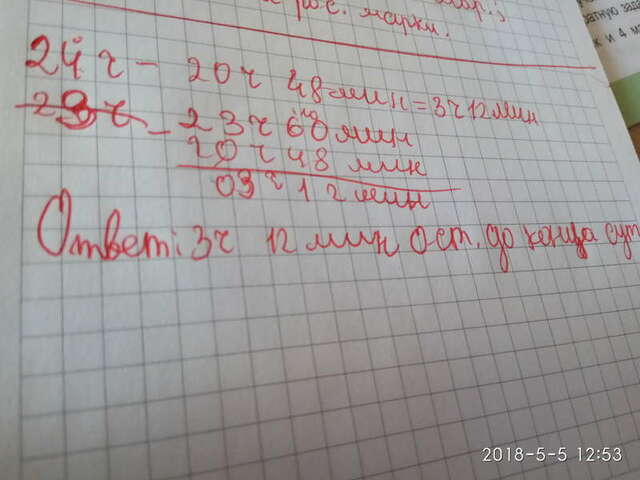 рос. марки.
24ч - 20ч 48мин = 3ч 12мин
23ч
- 23ч 60мин
20ч 48 мин
03ч 12мин
Ответ: 3ч 12 мин ост. до конца сут
и 4 м
2018-5-5 12:53